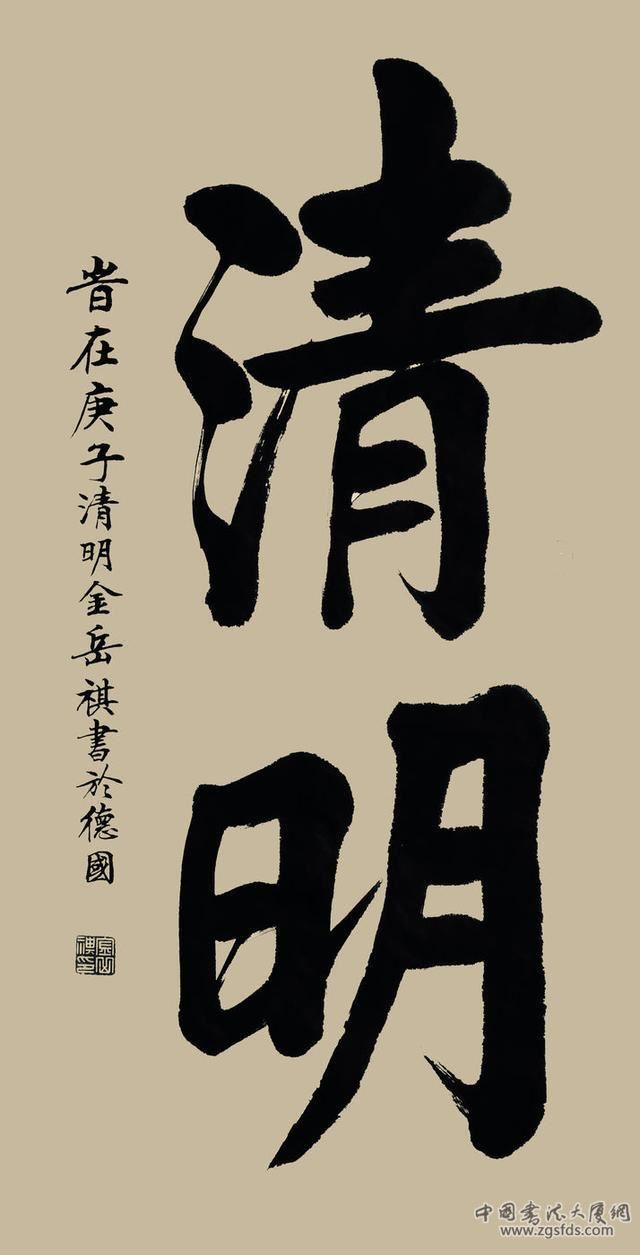 清明
旹在庚子清明金岳祺書於德國
中國書法大廈網
www.zgsfds.com